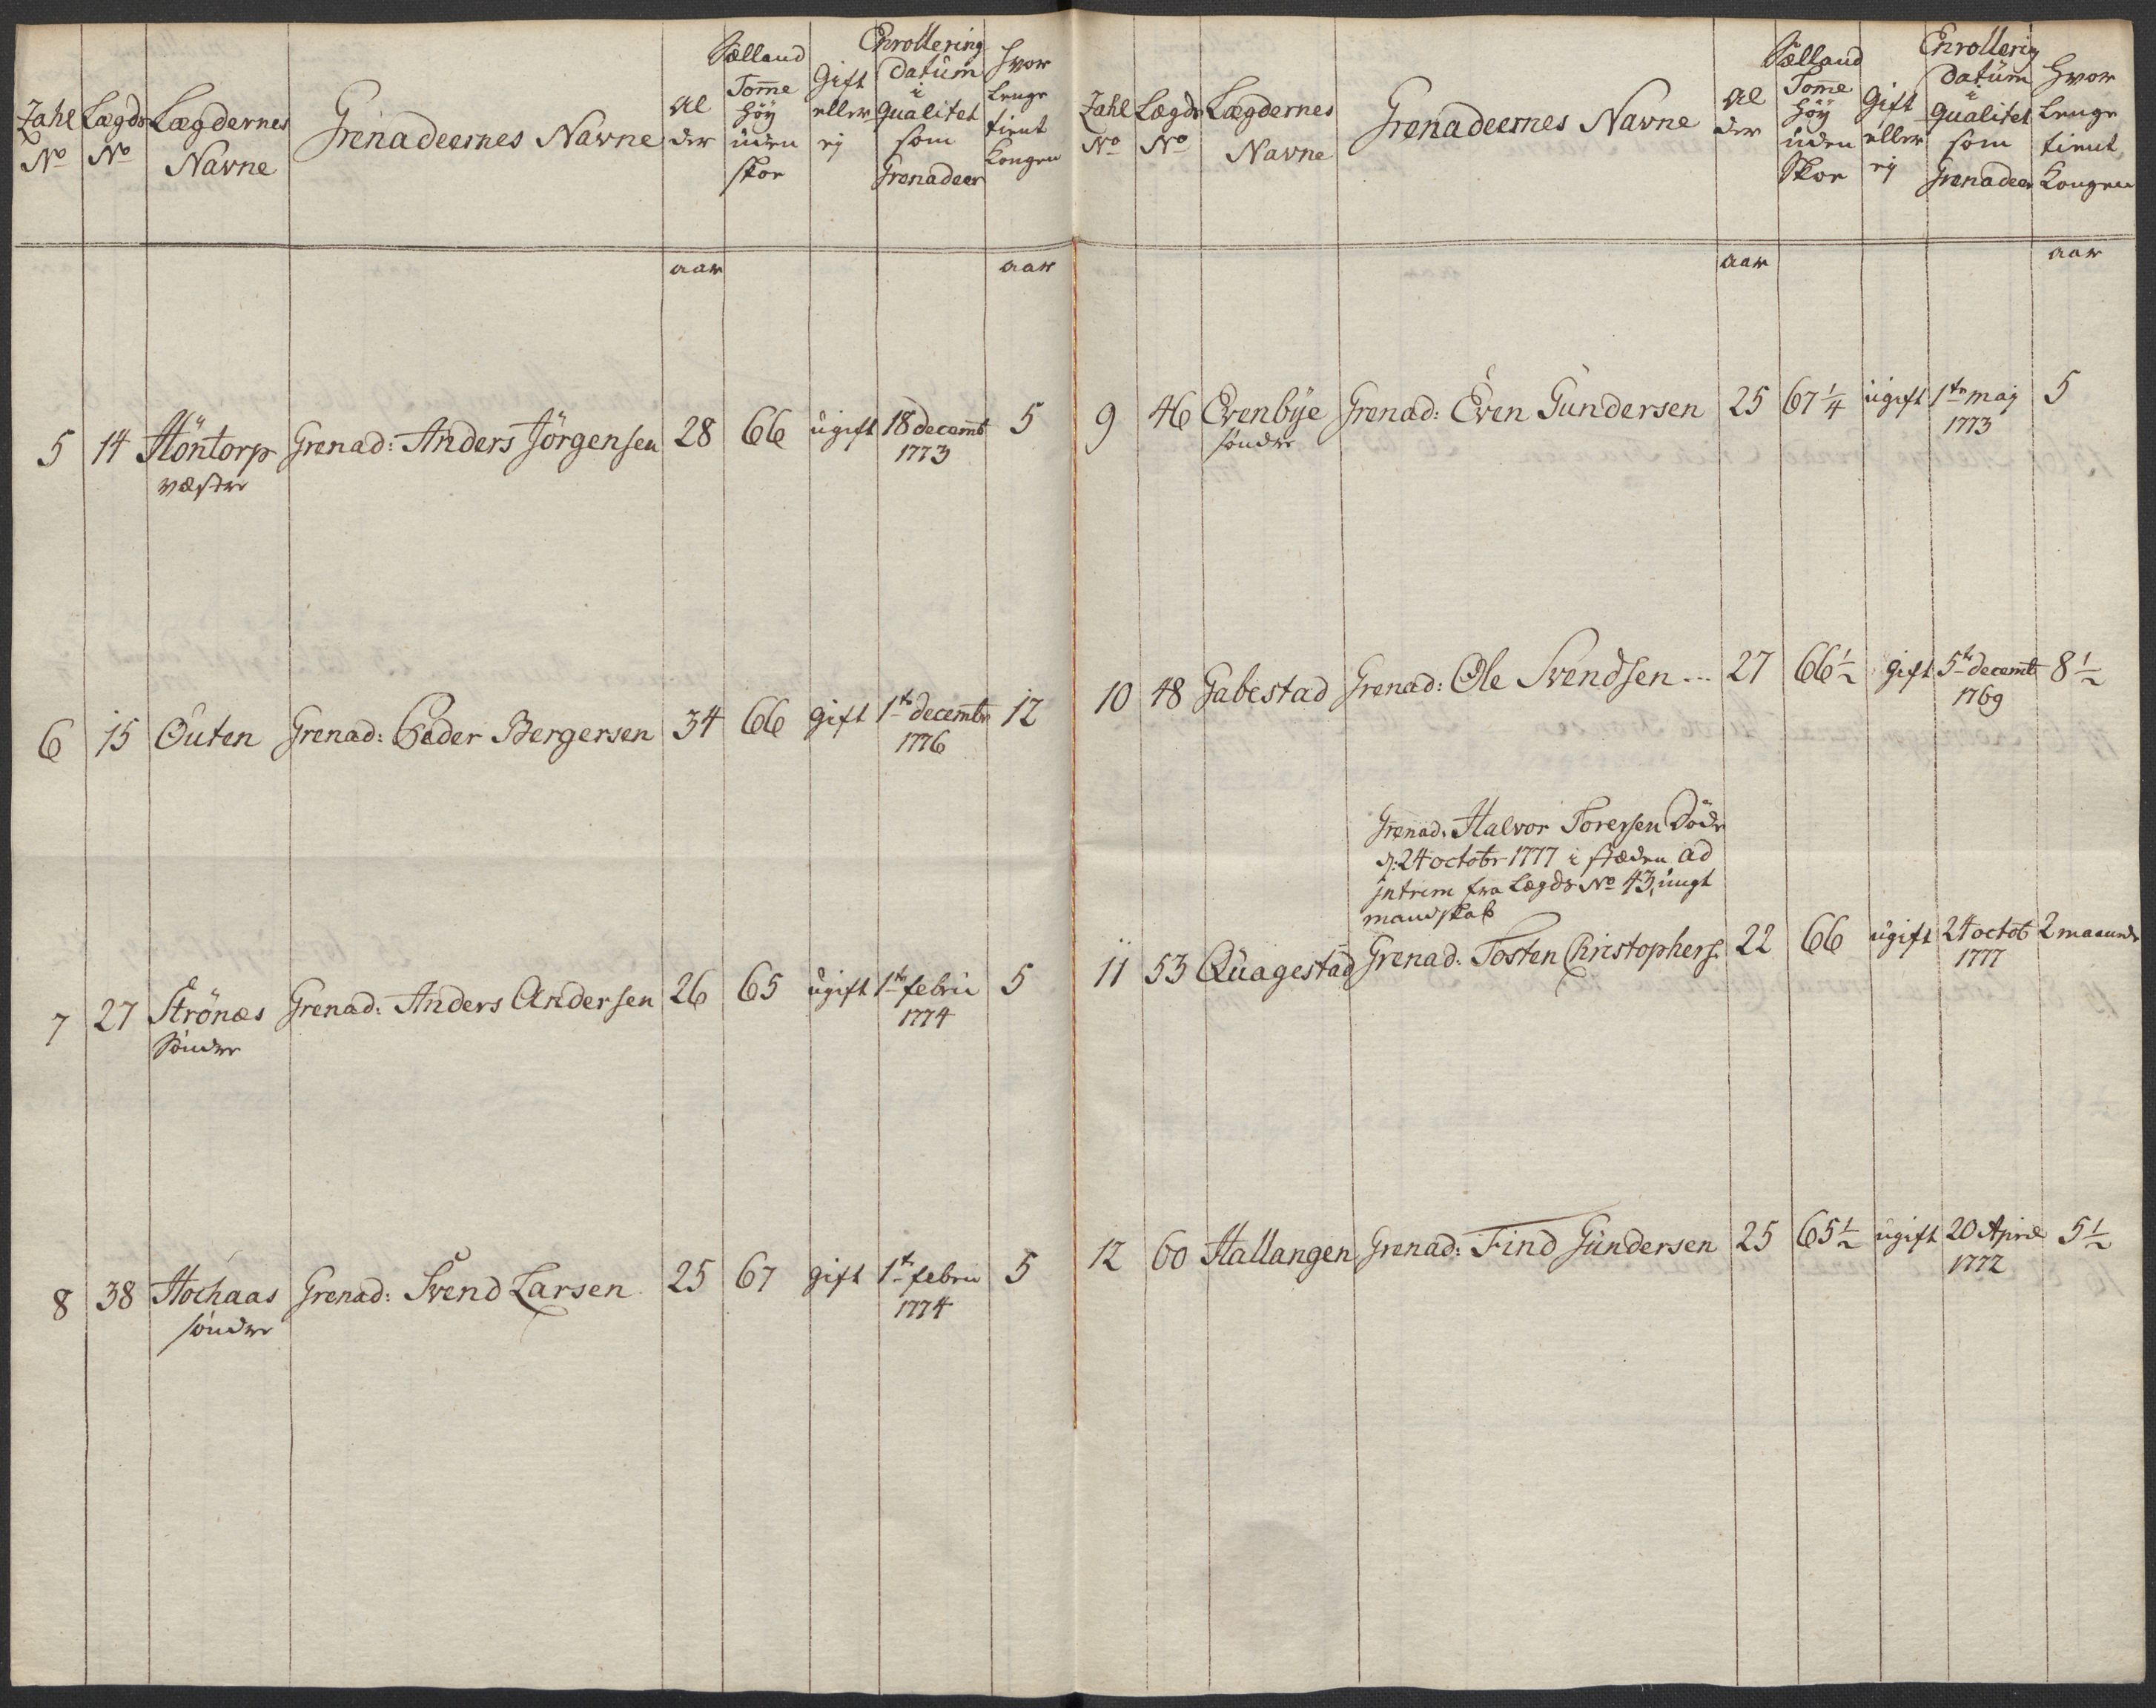 Zahl No
Lægds No
Lægdernes Navne
Grenadeernes Navne
Alder
Sælland Tomme Høy uden skoe
Gift eller ej
Enrollering datum i qualitet som Grenadeer
Hvor Lenge tient Kongen
aar
aar
5 14 Höntorp Grenad: Anders Jörgensen 28 66 ugift 18 decembr 5
væstre
1773
6 15 Outen Grenad: Peder Bergersen 34 66 gift 1te decembr 12
1776
7 27 Strönæs Grenad: Anders Andersen 26 65 ugift 1te febru 5
Sondre
1774
8 38 Hochaas Grenad: Svend Larsen 25 67 gift 1te febru 5
sondre
1774
Zahl No
Lægds No
Lægdernes Navne
Grenadeernes Navne
Alder
Sælland Tomme høy uden Skoe
Gift eller ej
Enrollerig datum i qualitet som Grenadeer
Hvor Lenge tient Kongen
aar
aar
9 46 Evenbye Grenad: Even Gundersen 25 67 1/4 ugift 1te maj 5
sondre
1773
10 48 Gabestad Grenad: Ole Svendsen... 27 66 1/2 gift 5te decembr 8 1/2
1769
Grenad: Halvor Toresen Döde
d: 24 octobr 1777 i stæden ad
jntrim fra Lægds No 43, ungt
mandskab
11 53 Quagestad Grenad: Tosten Christophers: 22 66 ugift 24 octob 2 maaneder
1777
12 60 Hallangen Grenad: Find Gundersen 25 65 1/2 ugift 20 April 5 1/2
1772